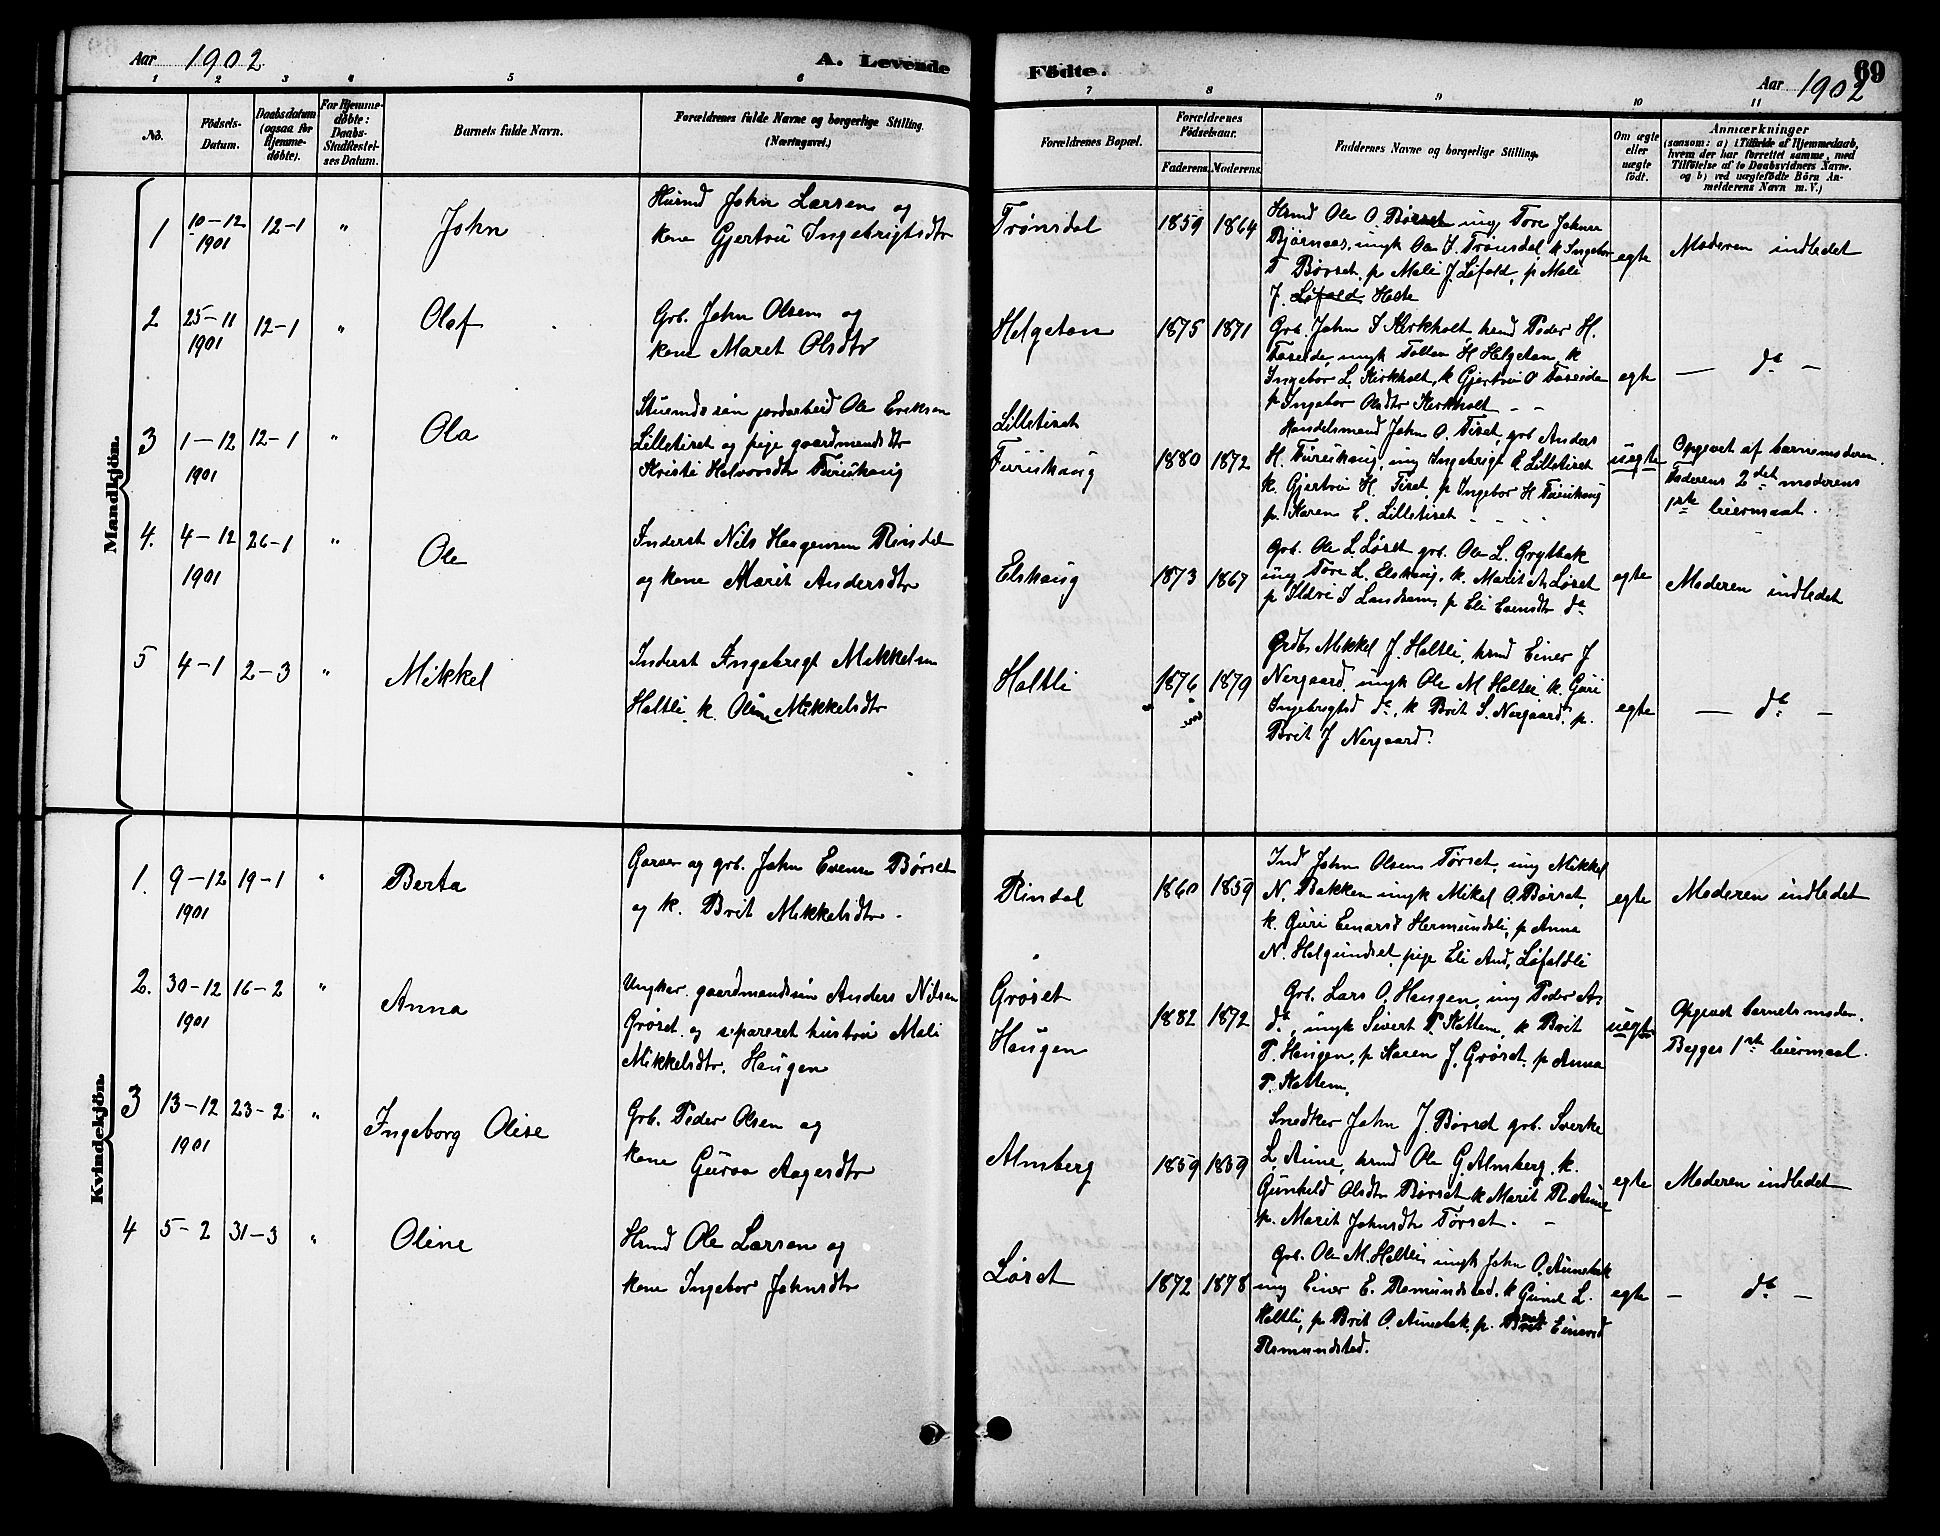 Aar 1902
A. Levende
Födte.
Aar 1902
69
1 2 3 4 5 6 7 8 9 10 11
No.
Födsels-
Datum.
Daabsdatum
(ogsaa for
Hjemme-
døbte).
For Hjemme-
døbte:
Daabs-
Stadfæstel-
ses Datum.
Barnets fulde Navn.
Forældrenes fulde Navne og borgerlige Stilling.
(Næringsvei.)
Forældrenes Bopæl.
Forældrenes
Födselsaar.
Faderens.
Moderens.
Faddernes Navne og borgerlige Stilling.
Om ægte
eller
uægte
født.
Anmærkninger
(saasom: a) i Tilfælde af Hjemmedaab,
hvem der har forrettet samme, med
Tilföielse af to Daabsvidners Navne.
og b) ved uægtefödte Börn An-
melderens Navn m. V.)
Mandkjön.
1
10-12
1901
12-1
"
John
Husmd John Larsen og
kone Gjertru Ingebrigtsdtr
Trønsdal
1859
1864
Hsmd Ole O. Børset ung Tore Johns
Bjørnaas, ungk Ola J. Trønsdal, k Ingebor
T Børset, p Mali J. Løfald, p Mali
J. Løfald Holte
egte
Moderen indledet
2
25-11
1901
12-1
"
Olaf
Grb. John Olsen og
kone Maret Olsdtr
Helgeton
1875
1871
Grb. John I Kirkholt, hsmd Peder H.
ungk Tollen H Helgeton, k
Ingebor L. Kirkholt, k Gjertru O
p Ingebor Olsdtr Kirkholt - -
egte
— do —
3
1-12
1901
12-1
"
Ola
Stuemds søn jordarbeid Ole Eriksen
Lilletiset og pige gaardmandsdtr
Kristi Halvorsdtr Furuhaug
Lilletiset
Furuhaug
1880
1872
Handelsmand John O. Tiset, grb Anders
H. Furuhaug, ung Ingebrigt E Lilletiset
k. Gjertru H. Tiset, p Ingebor H Furuhaug
p. Karen E. Lilletiset - - - -
uegte
Opgivet af barnemoderen.
Faderens 2det moderens
1ste leiermaal.
4.
4-12
1901
26-1
"
Ole
Inderst Nils Haagensen Rindal
og kone Marit Andersdtr
Elshaug
1873
1867
Grb. Ole L Løset grb. Ole L. Grytbak
ung Tore L. Elshaug, k. Marit A. Løset
p Ildri I Landsem, p Eli Evensdtr do
egte
Moderen indledet
5
4-1
2-3
"
Mikkel
Inderst Ingebrigt Mikkelsen
Holtli k. Oline Mikkelsdtr
Holtli
1876
1879
Grdbr Mikkel J. Holtli, hsmd Einer J
Nergaard, ungk Ole M Holtli k. Guri
Ingebrigtsd do, k Brit S. Nergaard, p.
Brit J Nergaard.
egte
— do —
Kvindekjön.
1.
9-12
1901
19-1
"
Berta
Garver og grb. John Evensen Børset
og k. Brit Mikkelsdtr -
Rindal
1860
1859
Ind John Olsen Tørset, ung Mikkel
N. Bakken ungk Mikal O. Børset,
k. Guri Einarsd Hermundsli, p Anna
N. Helgundset, pige Eli And. Løfaldli
egte
Moderen indledet
2.
30-12
1901
16-2
"
Anna
Ungkar gaardmandssøn Anders Nilsen
Grøset og separeret hustru Mali
Mikkelsdtr. Haugen
Grøset
Haugen
1882
1872
Grb. Lars O. Haugen, ung Peder As
do, ungk Sivert P. Kattem, k Brit
T. Haugen, p Karen J. Grøset, p Anna
P. Kattem.
uegte
Opgivet barnets moder.
Begges 1ste leiermaal.
3
13-12
1901
23-2
"
Ingeborg Olise
Grb. Peder Olsen og
kone Guroa Aagesdtr
Almberg
1859
1859
Snedker John J. Børset grb. Sverke
L. Aune, hsmd Ole G. Almberg, k.
Gunhild Olsdtr Børset k Marit R Aune
p. Marit Johnsdtr Tørset. -
egte
Moderen indledet
4
5-2
31-3
"
Oline
Hsmd Ole Larsen og
kone Ingebor Johnsdtr
Løset
1872
1878
Grb. Ole M. Holtli ungk John O. Aunebak
ung Einer E. Romundstad, k Guнil L.
Holtli, p Brit O. Aunebak, p. Einersd
Romundstad.
egte
— do —